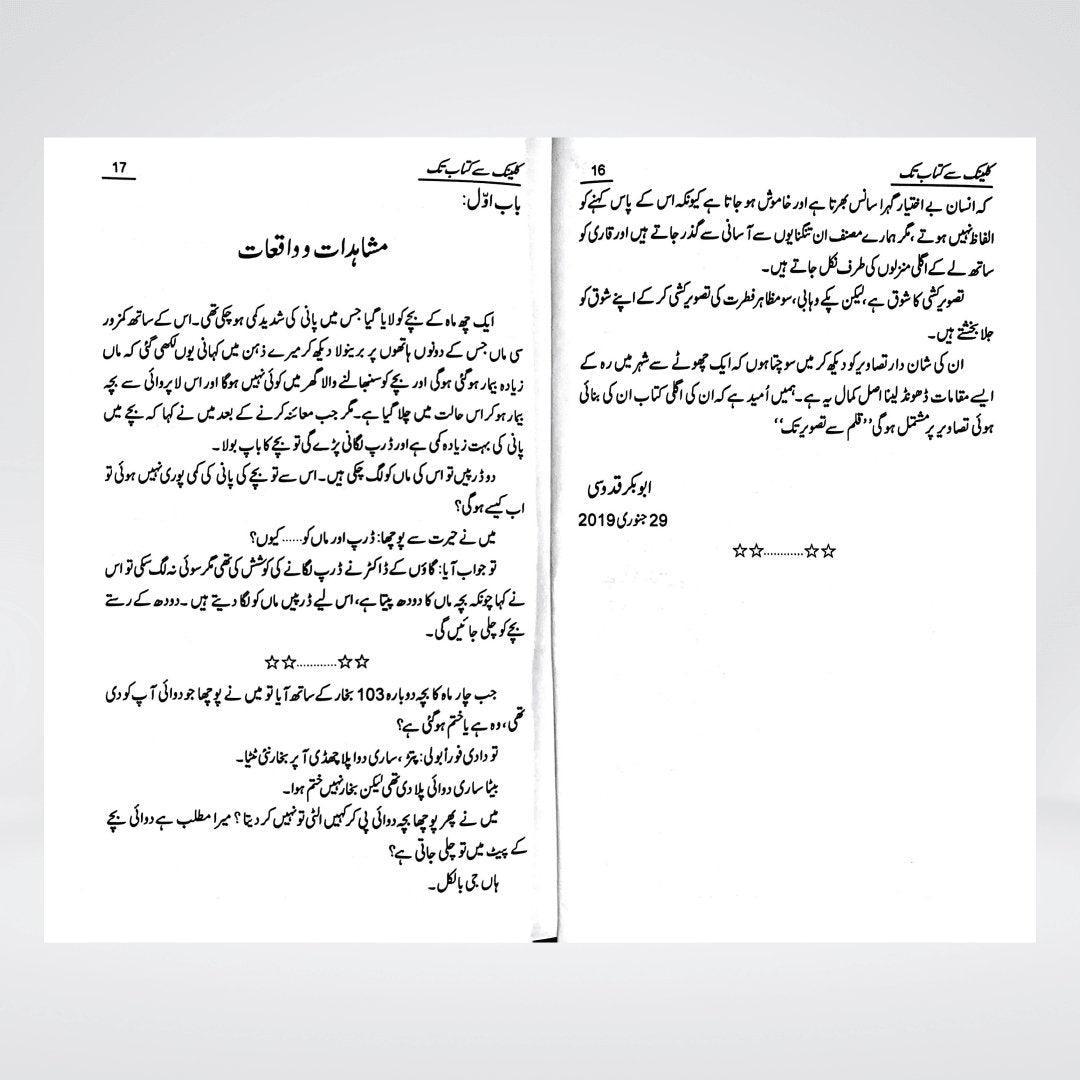 کلینک سے کتاب تک
16
کہ انسان بے اختیار گہرا سانس بھرتا ہے اور خاموش ہو جاتا ہے کیونکہ اس کے پاس کہنے کو
الفاظ نہیں ہوتے ، مگر ہمارے مصنف ان تنگنایوں سے آسانی سے گذر جاتے ہیں اور قاری کو
ساتھ لے کے اگلی منزلوں کی طرف نکل جاتے ہیں۔
تصویر کشی کا شوق ہے ، لیکن پکے وہابی ، سو مظاہر فطرت کی تصویر کشی کر کے اپنے شوق کو
جلا بخشتے ہیں۔
ان کی شان دار تصاویر کو دیکھ کر میں سوچتا ہوں کہ ایک چھوٹے سے شہر میں رہ کے
ایسے مقامات ڈھونڈ لینا اصل کمال یہ ہے۔ ہمیں اُمید ہے کہ ان کی اگلی کتاب ان کی بنائی
ہوئی تصاویر پر مشتمل ہوگی ’’قلم سے تصویر تک‘‘
ابوبکر قدوسی
29 جنوری 2019
☆☆............☆☆
کلینک سے کتاب تک
17
باب اوّل:
مشاہدات و واقعات
ایک چھ ماہ کے بچے کو لایا گیا جس میں پانی کی شدید کمی ہو چکی تھی۔ اس کے ساتھ کمزور
سی ماں جس کے دونوں ہاتھوں پر برینولا دیکھ کر میرے ذہن میں کہانی یوں لکھی گئی کہ ماں
زیادہ بیمار ہوگئی ہوگی اور بچے کو سنبھالنے والا گھر میں کوئی نہیں ہوگا اور اس لاپروائی سے بچہ
بیمار ہو کر اس حالت میں چلا گیا ہے۔ مگر جب معائنہ کرنے کے بعد میں نے کہا کہ بچے میں
پانی کی بہت زیادہ کمی ہے اور ڈرپ لگانی پڑے گی تو بچے کا باپ بولا۔
دو ڈرپیں تو اس کی ماں کو لگ چکی ہیں۔ اس سے تو بچے کی پانی کی کمی پوری نہیں ہوئی تو
اب کیسے ہوگی؟
میں نے حیرت سے پوچھا: ڈرپ اور ماں کو...... کیوں؟
تو جواب آیا: گاؤں کے ڈاکٹر نے ڈرپ لگانے کی کوشش کی تھی مگر سوئی نہ لگ سکی تو اس
نے کہا چونکہ بچہ ماں کا دودھ پیتا ہے، اس لیے ڈرپیں ماں کو لگا دیتے ہیں۔ دودھ کے رستے
بچے کو چلی جائیں گی۔
☆☆............☆☆
جب چار ماہ کا بچہ دوبارہ 103 بخار کے ساتھ آیا تو میں نے پوچھا جو دوائی آپ کو دی
تھی، وہ ہے یا ختم ہوگئی ہے؟
تو دادی فوراً بولی: پتر ، ساری دوا پلا چھڈی آ پر بخار نئی ٹٹیا۔
بیٹا ساری دوائی پلا دی تھی لیکن بخار نہیں ختم ہوا۔
میں نے پھر پوچھا بچہ دوائی پی کر کہیں الٹی تو نہیں کر دیتا ؟ میرا مطلب ہے دوائی بچے
کے پیٹ میں تو چلی جاتی ہے؟
ہاں جی بالکل۔